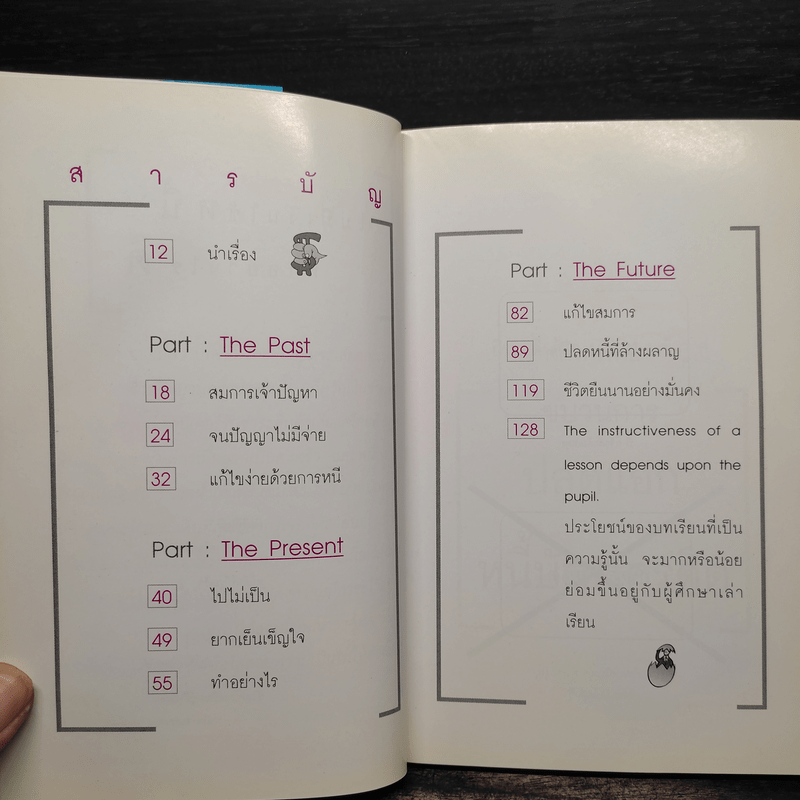 สารบัญ
12 นำเรื่อง
Part : The Past
18 สมการเจ้าปัญหา
24 จนปัญญาไม่มีจ่าย
32 แก้ไขง่ายด้วยการหนี
Part : The Present
40 ไปไม่เป็น
49 ยากเย็นเข็ญใจ
55 ทำอย่างไร
Part : The Future
82 แก้ไขสมการ
89 ปลดหนี้ที่ล้างผลาญ
119 ชีวิตยืนนานอย่างมั่นคง
128 The instructiveness of a
lesson depends upon the
pupil.
ประโยชน์ของบทเรียนที่เป็น
ความรู้นั้น จะมากหรือน้อย
ย่อมขึ้นอยู่กับผู้ศึกษาเล่า
เรียน